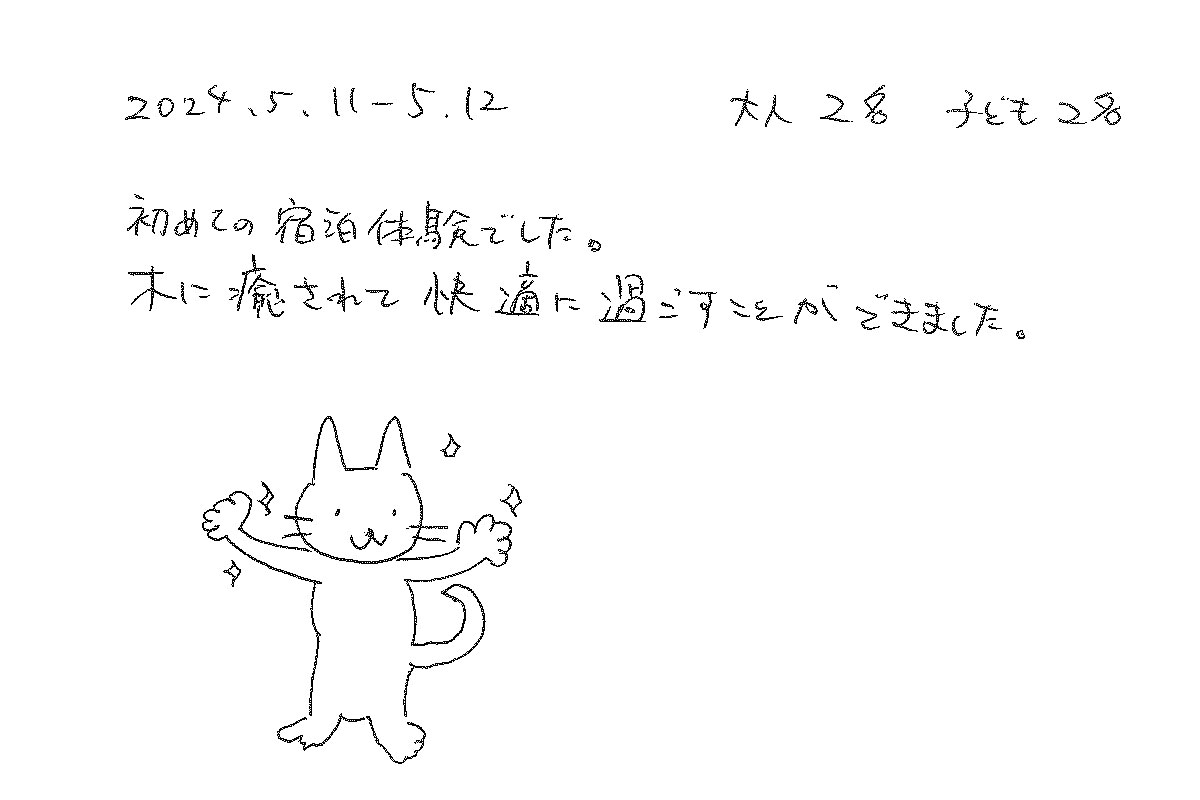 2024.5.11-5.12 大人 2名 子ども 2名
初めての宿泊体験でした。
木に癒されて快適に過ごすことができました。